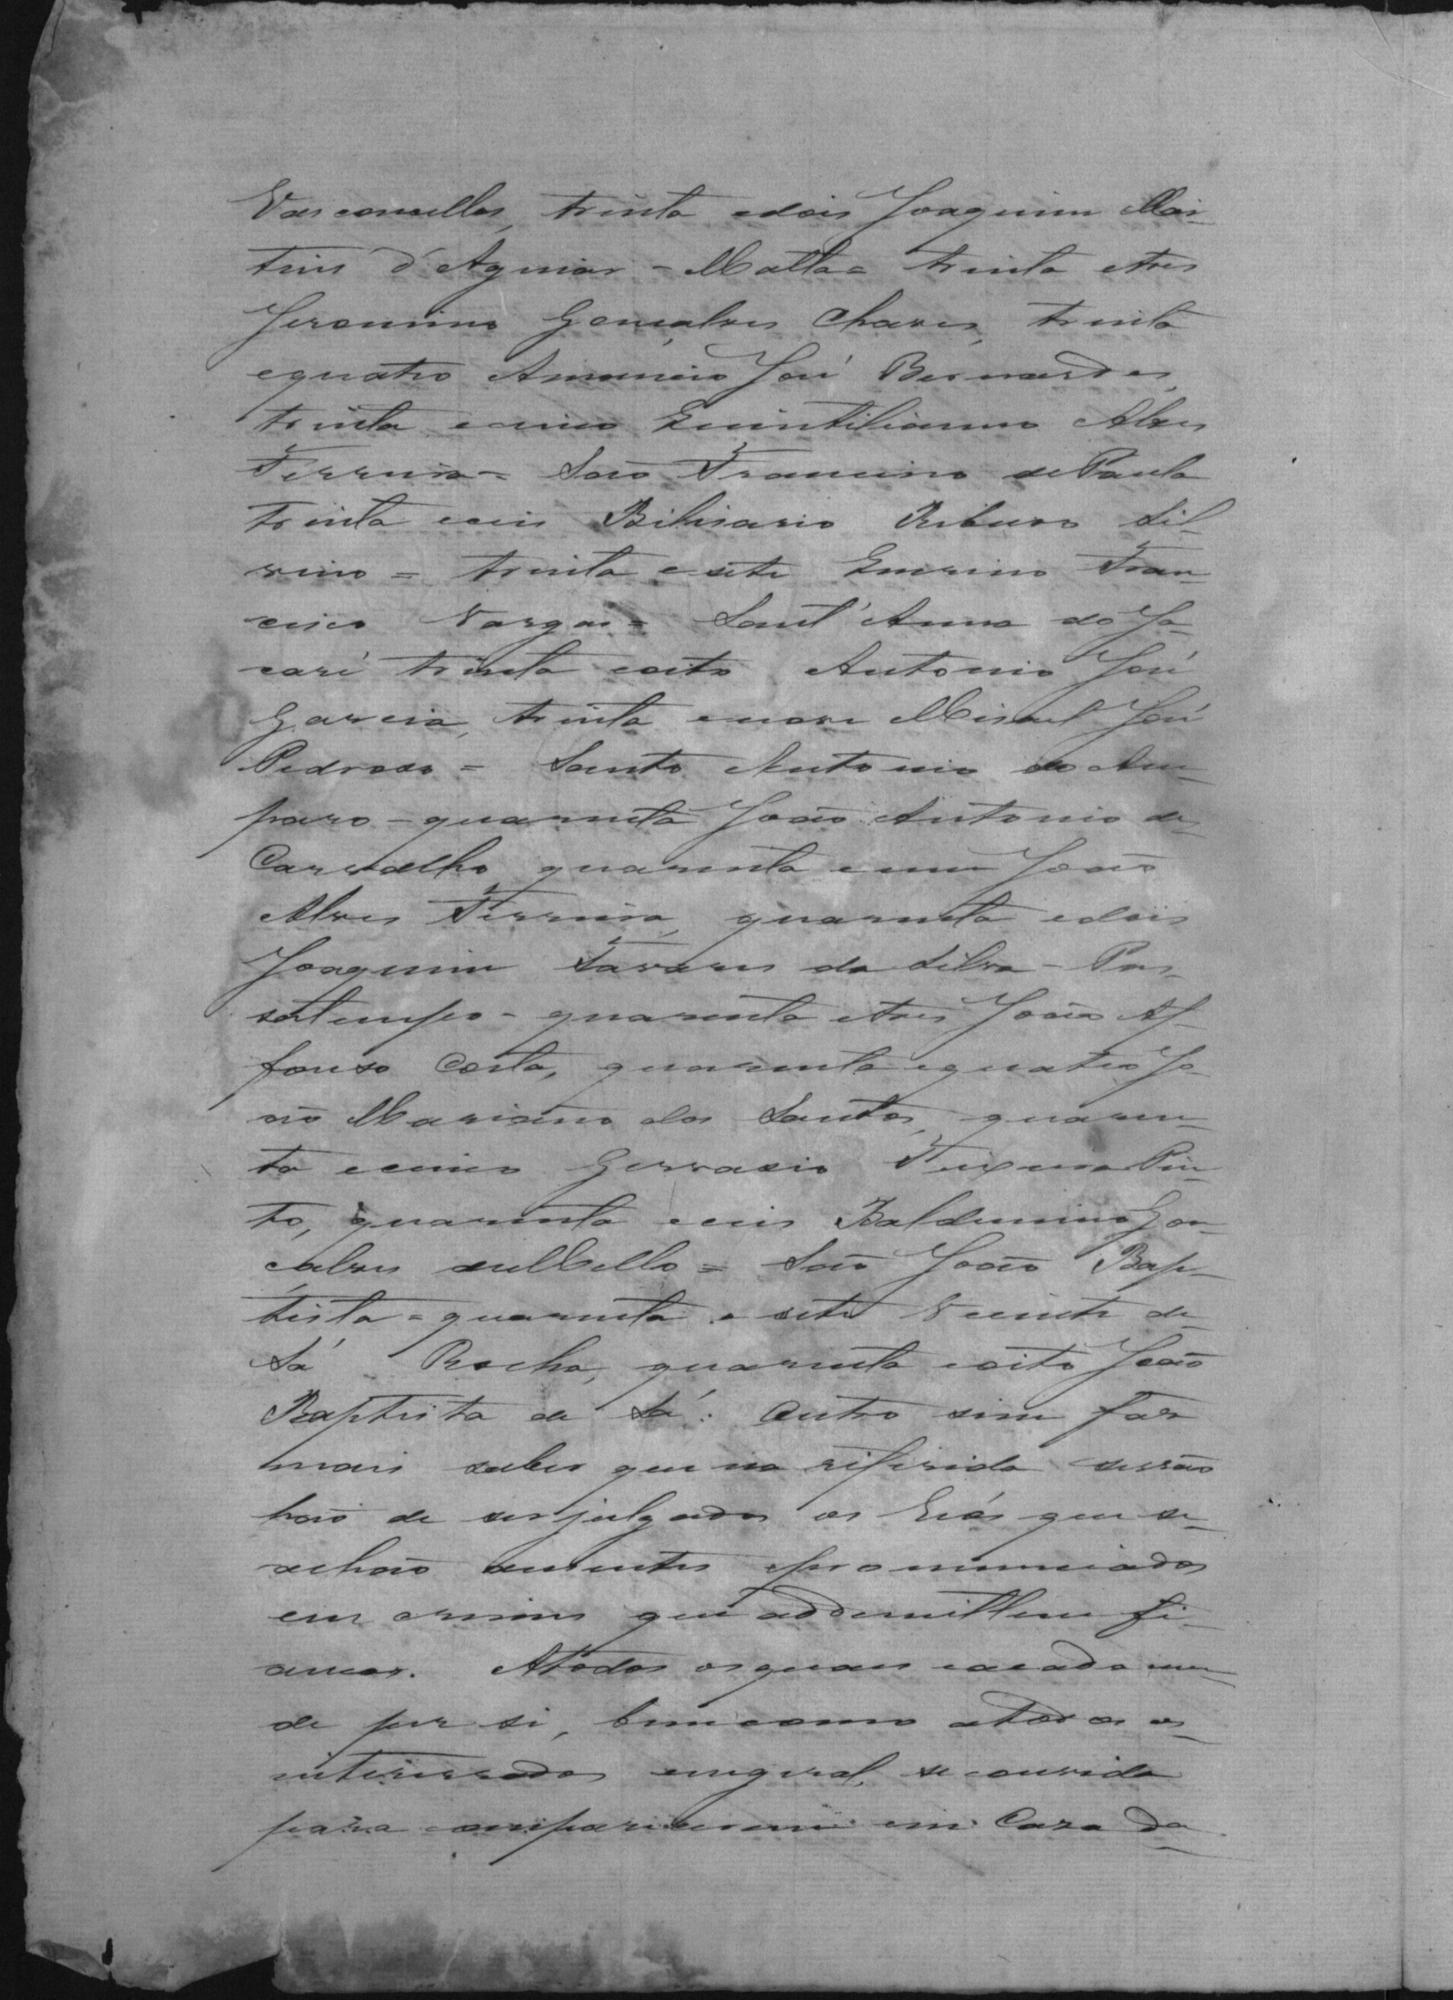 Vasconcellos, trinta e dois Joaquim Mar-
tins d'Aguiar - Matta = trinta e tres
Jeronimo Gonçalves Chaves, trinta
e quatro Amancio José Bernardes,
trinta e cinco Quintiliano Alves
Ferreira = São Francisco de Paula
trinta e seis Bilisario Ribeiro Sil-
verio = trinta e sete Francisco Vargas = Sant'Anna do Ja-
caré trinta e oito Antonio José
Garcia, trinta e nove Misael José
Pedroso = Santo Antonio do Am-
paro - quarenta João Antonio de
Carvalho, quarenta e um João
Alves Ferreira, quarenta e dois
Joaquim Tavares da Silva - Pas-
satempo - quarenta e tres João Af-
fonso Costa, quarenta e quatro Jo-
ão Mariano dos Santos, quaren-
ta e cinco Gervasio Teixeira Pin-
to, quarenta e seis Balduino Gon-
calves de Mello = São João Bap-
tista = quarenta e sete Vicente de
Sá Rocha, quarenta e oito João
Baptista de Sá. Outro sim faz
mais saber que na referida sessão
hão de ser julgados os Reós que se
achão ausentes e pronunciados
em crimes que addmittem fi-
ança. A todos os quaes e a cada um
de per si, bem como a todos os
interessados em geral, se convida
para comparecerem em Caza da